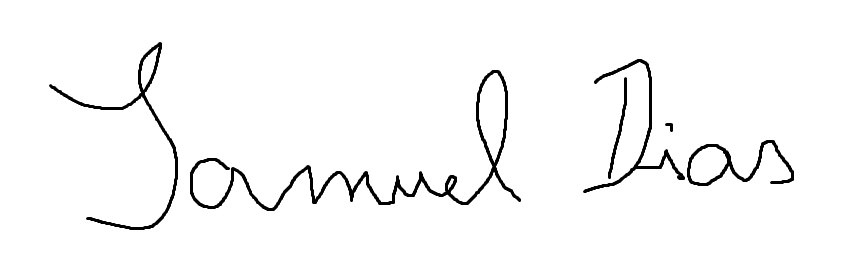 Samuel Dias